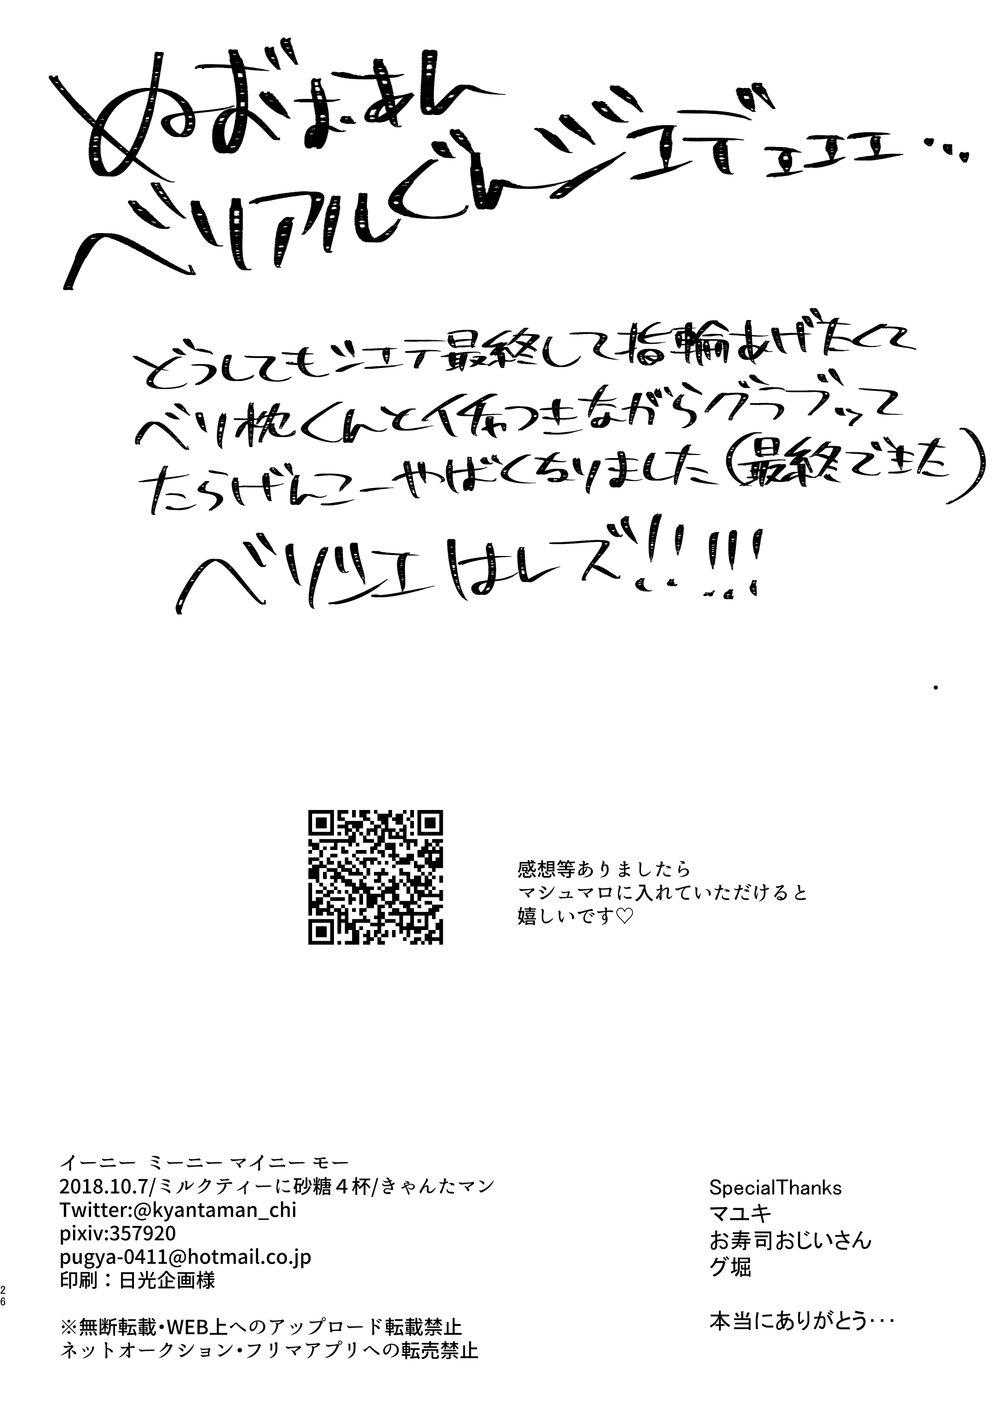 ぬおまあん
ベリアルぐんジエデェエエ…
どうしてもジエテ最終して指輪あげたくて
ベリ枕くんとイチャつきながらグラブって
たらげんこーやばくなりました(最終できた)
ベリジエはレズ!!!!!
感想等ありましたら
マシュマロに入れていただけると
嬉しいです♡
イーニー ミーニー マイニー モー
2018.10.7/ミルクティーに砂糖４杯/きゃんたマン
Twitter:@kyantaman_chi
pixiv:357920
pugya-0411@hotmail.co.jp
印刷：日光企画様
※無断転載・WEB上へのアップロード転載禁止
ネットオークション・フリマアプリへの転売禁止
SpecialThanks
マユキ
お寿司おじいさん
グ堀
本当にありがとう…
26